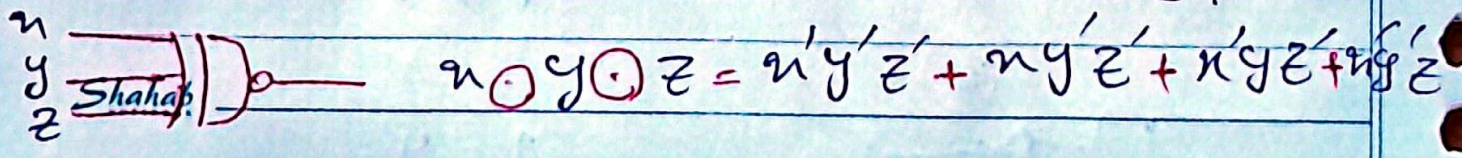 x
y
z
Shahab.
x⊙y⊙z = x'y'z' + xy'z' + x'yz' + x'y'z